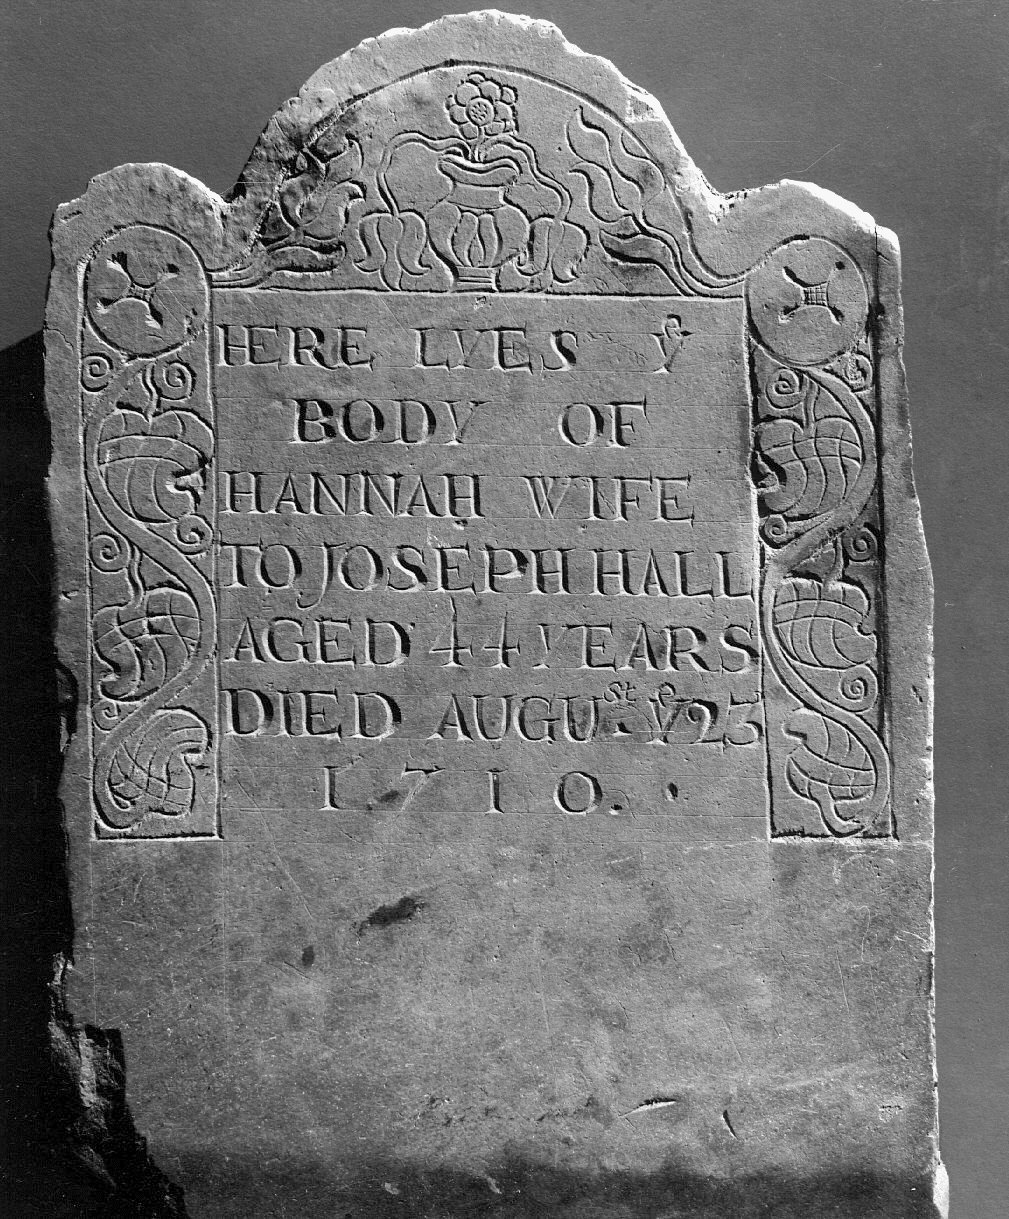 HERE LYES yᵉ
BODY OF
HANNAH WIFE
TO JOSEPH HALL
AGED 44 YEARS
DIED AUGUˢᵗ yᵉ 23
1710.